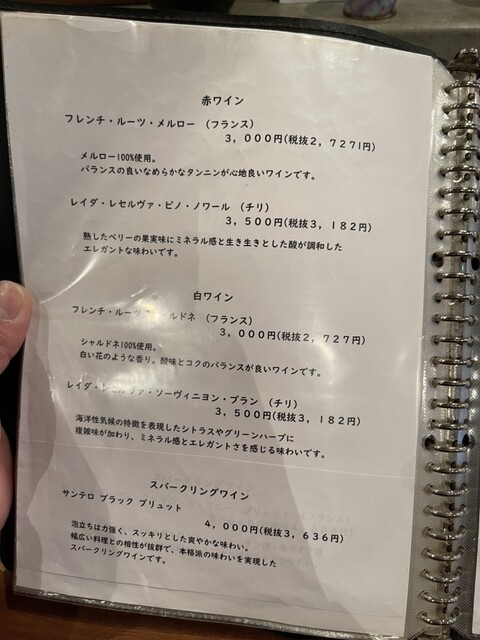 赤ワイン
フレンチ・ルーツ・メルロー （フランス）
3，000円(税抜2，7271円)
メルロー100%使用。
バランスの良いなめらかなタンニンが心地良いワインです。
レイダ・レセルヴァ・ピノ・ノワール （チリ）
3，500円(税抜3，182円)
熟したベリーの果実味にミネラル感と生き生きとした酸が調和した
エレガントな味わいです。
白ワイン
フレンチ・ルーツ ルドネ （フランス）
3，000円(税抜2，727円)
シャルドネ100%使用。
白い花のような香り。酸味とコクのバランスが良いワインです。
レイダ・レセルヴァ・ソーヴィニヨン・ブラン （チリ）
3，500円(税抜3，182円)
海洋性気候の特徴を表現したシトラスやグリーンハーブに
複雑味が加わり、ミネラル感とエレガントさを感じる味わいです。
スパークリングワイン
サンテロ ブラック ブリュット
4，000円(税抜3，636円)
泡立ちは力強く、スッキリとした爽やかな味わい。
幅広い料理との相性が抜群で、本格派の味わいを実現した
スパークリングワインです。